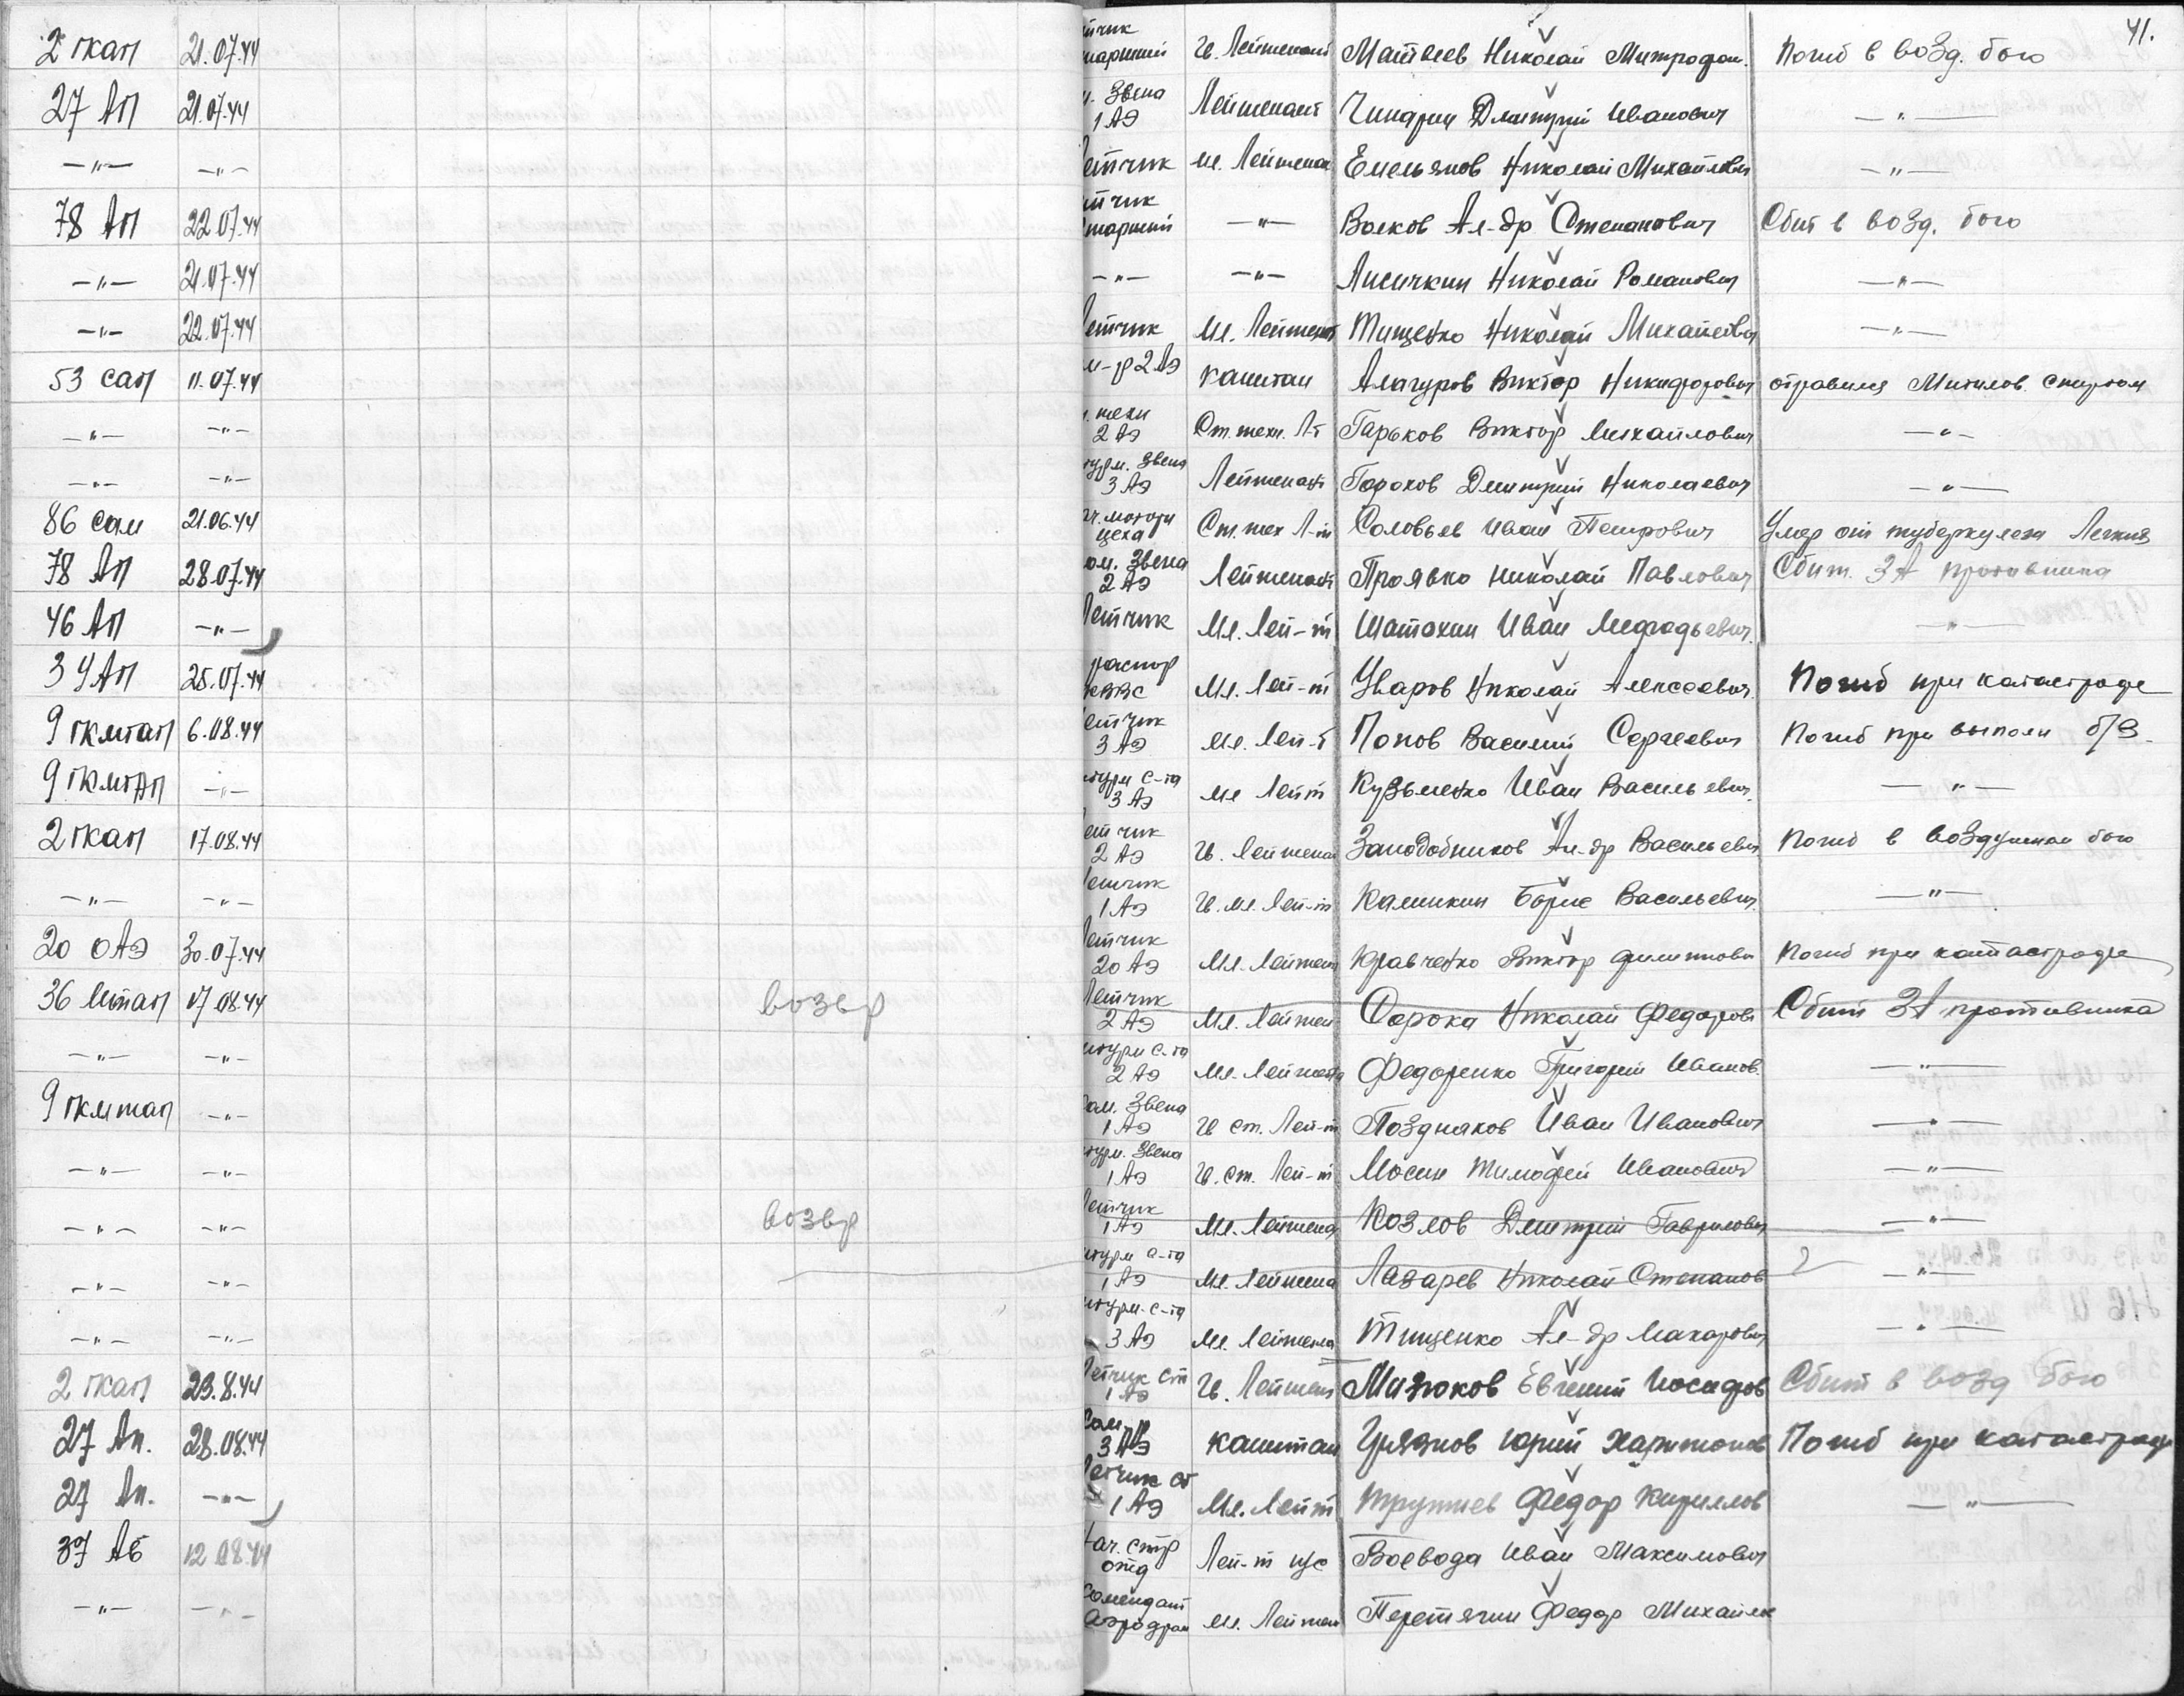 41.
2 гкап 21.07.44 Гв. Лейтенант Матвеев Николай Митрофан. Погиб в возд. бою
27 Ап 21.07.44 Звена 1 АЭ Лейтенант Чинарин Дмитрий Иванович —"—
—"— —"— Мл. Лейтенан Емельянов Николай Михайлович —"—
78 Ап 22.07.44 —"— Волков Ал-др Степанович Сбит в возд. бою
—"— 21.07.44 —"— —"— Лисичкин Николай Романович —"—
—"— 22.07.44 Мл. Лейтенант Тищенко Николай Михайлович —"—
53 сап 11.07.44 2 АЭ капитан Виктор Никифорович отравился Митилов. спиртом
—"— —"— 2 АЭ Ст. техн. Л-т Гарьков Виктор Михайлович —"—
—"— —"— звена 3 АЭ Лейтенант Горохов Дмитрий Николаевич —"—
86 сам 21.06.44 цеха Ст. тех Л-т Соловьев Иван Петрович Умер от туберкулеза Легких
78 Ап 28.07.44 звена 2 АЭ Лейтенант Проявко Николай Павлович Сбит. ЗА противника
46 Ап —"— Мл. Лей-т Шатохин Иван Мефодьевич. —"—
3 УАп 25.07.44 Мл. Лей-т Уваров Николай Алексеевич. Погиб при катастрофе
9 гкмтап 6.08.44 3 АЭ Мл. Лей-т Попов Василий Сергеевич Погиб при выполн б/з
9 гкмтАп —"— 3 АЭ Мл Лейт Кузьменко Иван Васильевич. —"—
2 гкап 17.08.44 2 АЭ Гв. Лейтенан Заподобников Ал-др Васильевич Погиб в воздушном бою
—"— —"— 1 АЭ Гв. мл. Лей-т Камшкин Борис Васильевич. —"—
20 ОАЭ 30.07.44 20 АЭ Мл. Лейтен Кравченко Виктор Филиппови Погиб при катастрофе
36 мтап 17.08.44 возвр 2 АЭ Мл. Лейтен Сорока Николай Федоров Сбит ЗА противника
—"— —"— 2 АЭ Мл. Лейтена Федоренко Григорий Иванов. —"—
9 гкмтап —"— Звена 1 АЭ Гв ст. Лей-т Поздняков Иван Иванович —"—
—"— —"— Звена 1 АЭ Гв. ст. Лей-т Мосин Тимофей Иванович —"—
—"— —"— возвр 1 АЭ Мл. Лейтена Козлов Дмитрий Гаврилович —"—
—"— —"— 1 АЭ Мл. Лейтена Лазарев Николай Степанов —"—
—"— —"— 3 АЭ Мл. Лейтена Тищенко Ал-др Макарович —"—
2 гкап 23.8.44 1 АЭ Гв. Лейтен Мизюков Евгений Иосифов Сбит в возд бою
27 Ап. 28.08.44 3 АЭ капитан Урязнов Юрий Харитонов Погиб при катастрофе
27 Ап. —"— 1 АЭ Мл. Лейт Трутнев Федор Кириллов —"—
37 АБ 12.08.44 стр отд Лей-т и/с Воевода Иван Максимович
—"— —"— аэродром Мл. Лейтен Перетячин Федор Михайл